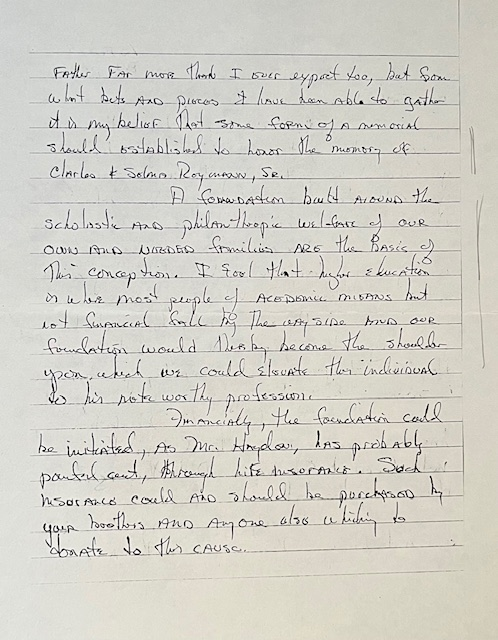 Father far more than I ever expect too, but from
what bits and pieces I have been able to gather
it is my belief that some form of a memorial
should established to honor the memory of
Charles & Selma Roymann, Sr.
A foundation built around the
scholastic and philanthropic welfare of our
own and needed families are the basis of
this conception. I feel that higher education
is where most people of academic means but
not financial fall by the wayside and our
foundation would thereby become the shoulder
upon which we could elevate this individual
to his note worthy profession.
Financially, the foundation could
be initiated, as Mr. has probably
pointed out, through life insurance. Such
insurance could and should be purchased by
your brothers and anyone else wishing to
donate to this cause.